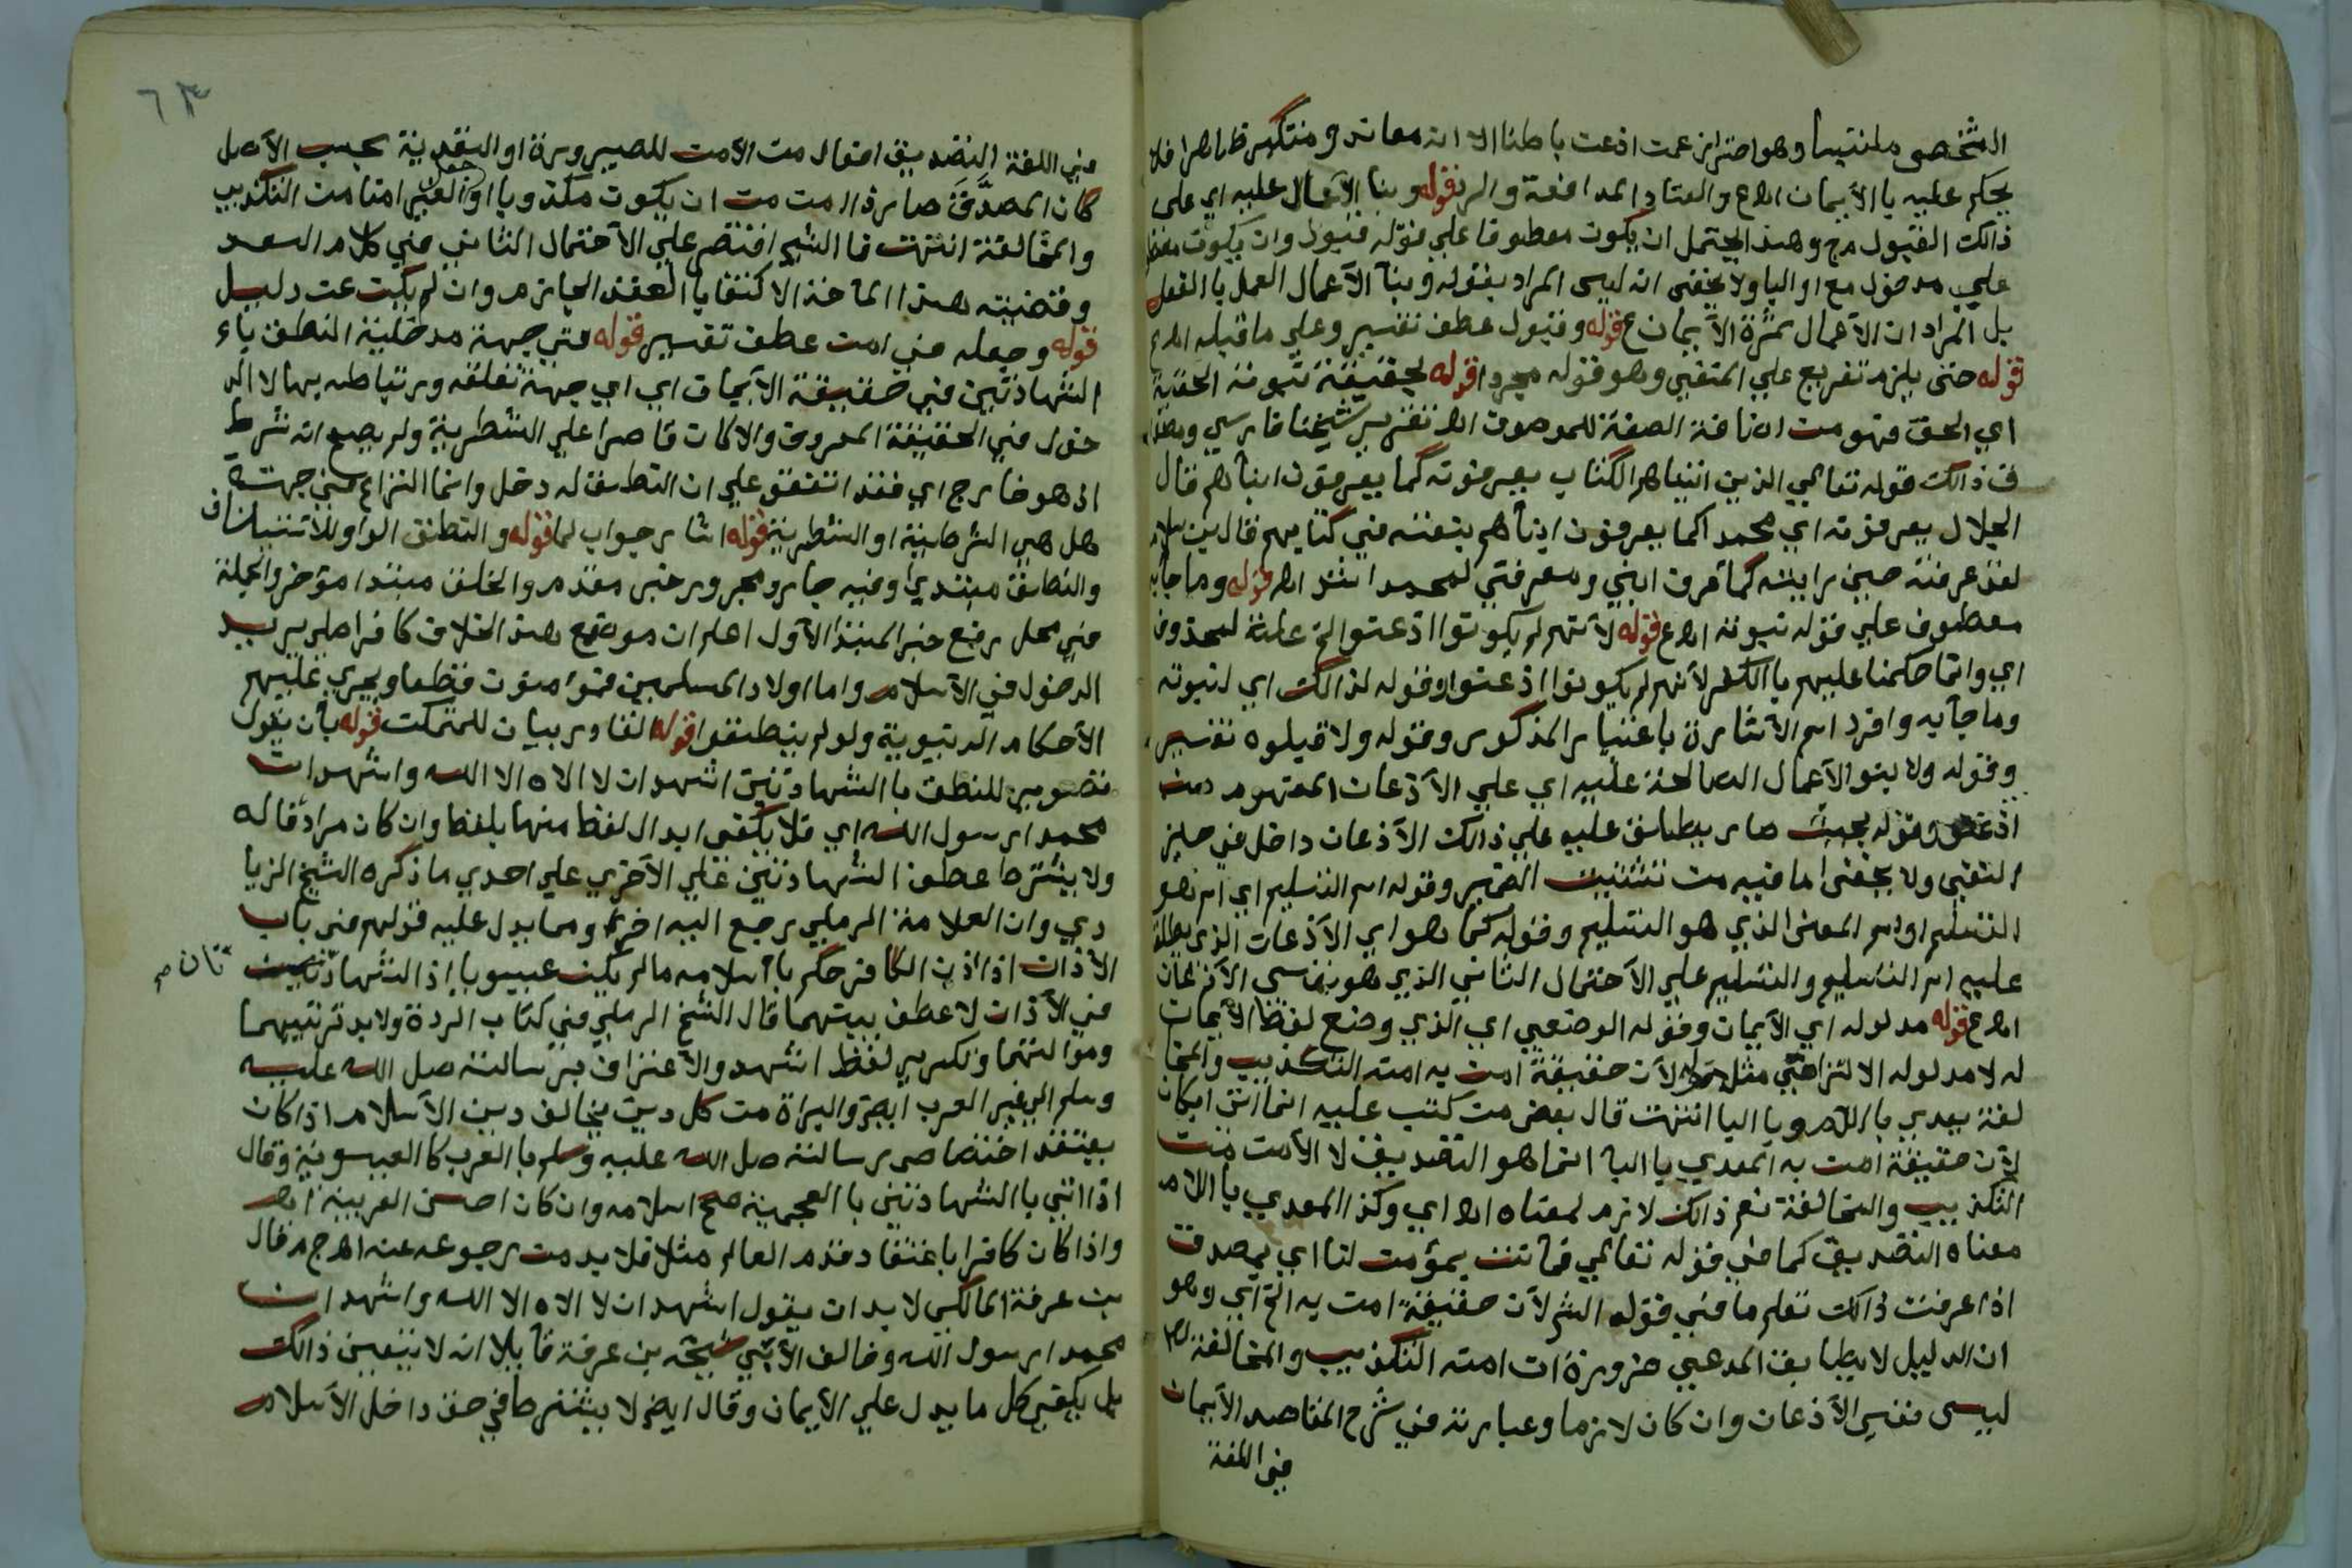 الشخص ملتبسا وهو احترازعمت اذعت باطنا الا انه معاند و منتكس ظاهرا فلا
يحكم عليه با الأيمان اهع والعناد المدافعة والرد قوله وبنا الأعمال عليه اي على
ذالك القبول مج وهذا يحتمل ان يكوت معطوفا علي قوله قبول وان يكوت
علي مدخول مع او اليا ولا يخفى انه ليس المراد بقوله وبنآ الأعمال العمل با الفعل
بل المراد ان الأعمال ثمرة الأيمان ع قوله وقبول عطف تفسير وعلي ماقبله اهع
قوله حتى يلزم تفريع علي المنفي وهو قوله مجردا قوله لحقيقة نبوته الحقية
اي الحق فهو مت اضافة الصفة للموصوف اه تقرير شيخنا فارسي
ف ذالك قوله تعالي الذين اتيناهم الكتاب يعرفونه كما يعرفون ابنآهم قال
الجلال يعرفونه اي محمد اكما يعرفون ابنآهم بنعته في كتابهم قال بن سلام
لقد عرفته حين رايته كما اعرف ابني ومعرفتي لمحمد اشد اه قوله وماجآبه
معطوف علي قوله نبوته اهع قوله لأنهم لم يكونوا اذعنوا الخ علة لمحذوف
اي وانما حكمنا عليهم با الكفر لأنهم لم يكونوا اذعنوا وقوله لذالك اي لنبوته
وما جآبه وافرد اسم الأشارة باعتبار المذكور وقوله ولا قبلوه تفسير
وقوله ولا بنو الأعمال الصالحة عليه اي علي الأذعان المفهوم من
اذعنو وقوله بحيث صار يطلق عليه علي ذالك الأذعان داخل في حيز
النفي ولا يخفى ما فيه مت تشتيت الضمير وقوله اسم التسليم اي اسم هو
التسليم او اسم المعنى الذي هو التسليم وقوله كما هو اي الأذعان الذي يطلق
عليه اسم التسليم والتسليم علي الأحتمال الثاني الذي هو نفس الأذعان
اهع قوله مدلوله اي الأيمان وقوله الوضعي اي الذي وضع لفظ الأيمان
له لا مدلوله الالتزامي مثل قوله لأن حقيقة امت به امنه التكذيب والمخا
لفة يعدي با اللام وبا اليا انتهت قال بعض مت كتب عليه
لأن حقيقة امت به المعدي با اليا انما هو التصديق لا الأمت مت
التكذيب والمخالفة نعم ذالك لازم لمعناه اه اي وكذا المعدي با اللام
معناه التصديق كما في قوله تعالي فما انت بمؤمت لنا اي بمصدق
اذا عرفت ذالك تعلم ما في قوله الشر لأن حقيقة امت به الخ اي وهو
ان الدليل لايطابق المدعي ضرورة ات امنه التكذيب والمخالفة
ليس نفس الأذعان وان كان لازما وعبارته في شرح المقاصد الأيمان
في اللغة
٦٣
في اللغة التصديق افعال مت الأمت للصيرورة او التعدية بحسب الأصل
كان المصدَّق صار ذا امت مت ان يكوت مكذوبا او جعل الغير امنا مت التكذيب
والمخالفة انتهت فا الشر اقتصر علي الأحتمال الثاني في كلام السعد
وقضيته هذا المآخذ الاكتفا با العقد الجازم وان لم يكن عت دليل
قوله وجعله في امت عطف تفسير قوله في جهة مدخلية النطق باء
الشهادتين في حقيقة الأيمان اي اي جهة تعلقه وارتباطه بها لا الد
خول في الحقيقة المعروف والا كان قاصرا علي الشطرية ولم يصح انه شرط
اذ هو خارج اي فقد اتفق علي ان النطق له دخل وانما النزاع في جهته
هل هي الشرطية او الشطرية قوله اشار جواب لما قوله والنطق الواو للاستئناف
والنطق مبتدي وفيه جار ومجرور خبر مقدم والخلف مبتدا مؤخر والجملة
في محل رفع خبر المبتدا الأول اعلم ان موضع هذا الخلاف كافر اصلي يريد
الدخول في الأسلام واما اولاد المسلمين فمؤمنون قطعا ويجري عليهم
الأحكام الدنيوية ولو لم ينطقوا قوله القادر بيان للمتمكن قوله بأن يقول
تصوير للنطق با الشهادتين اشهد ان لا الاه الا الله واشهد ان
محمد ارسول الله اي فلا يكفى ابدال لفظ منها بلفظ وان كان مرادفا له
ولا يشترط عطف الشهادتين علي الأخري علي احدي ما ذكره الشيخ الزيا
دي وان العلامة الرملي رجع اليه اخرا ومما يدل عليه قولهم في باب
الأذان اذا اذن الكافر حكم با أسلامه مالم يكن عيسويا إذ الشهادتين
تان صح
في الأذان لا عطف بينهما قال الشيخ الرملي في كتاب الردة ولابد ترتيبهما
وموالتهما وتكرير لفظ اشهد والأعتراف برسالته صل الله عليه
وسلم الي غير العرب ايضا والبراة مت كل دين يخالف دين الأسلام اذا كان
يعتقد اختصاص رسالته صل الله عليه وسلم با العرب كا العيسوية وقال
اذا اتي با الشهادتين با العجمية صح اسلامه وان كان احسن العربية اهر
واذا كان كافرا باعتقاد قدم العالم مثلا فلا بد مت رجوعه عنه اهج م قال
بن عرفة المالكي لابد ان يقول اشهد ان لا الاه الا الله واشهد ان
محمد ارسول الله وخالف الأبي شيخه بن عرفة قآيلا انه لا يتعين ذالك
بل يكفي كل ما يدل علي الأيمان وقال ايضا لا يشترط في حق داخل الأسلام